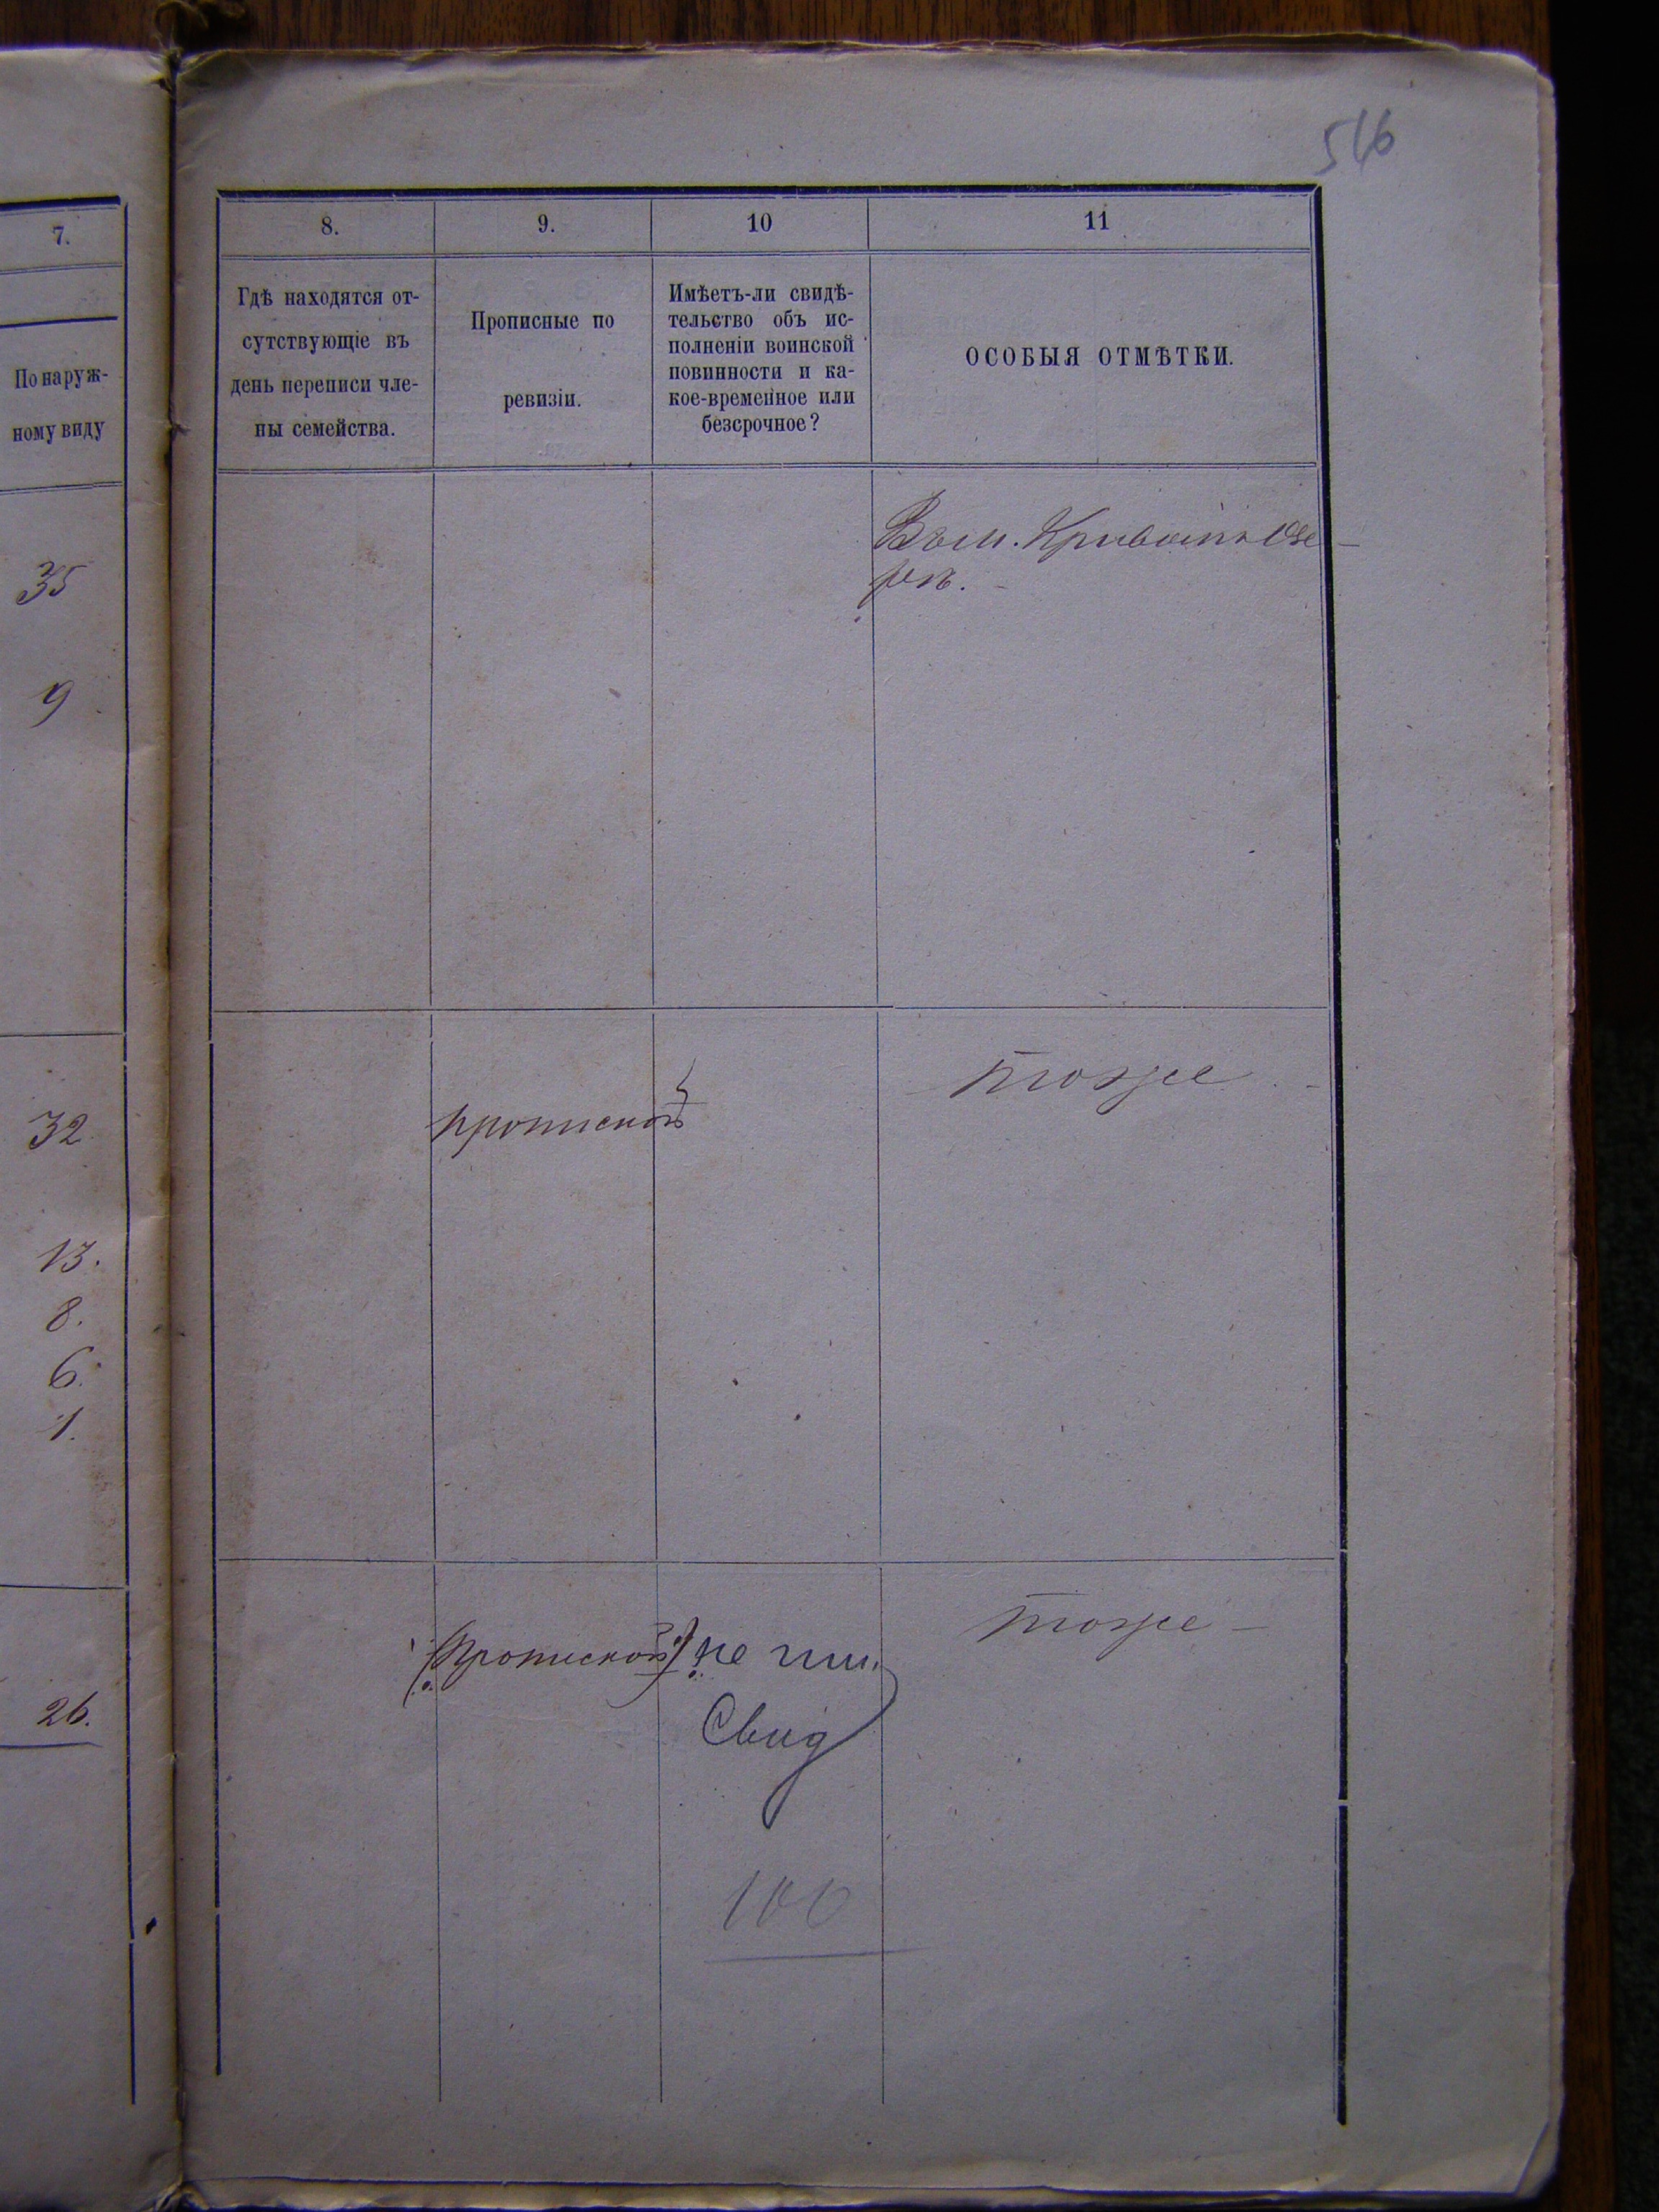 546
7.
По наруж-
ному виду
35
9
32
13.
8.
6.
1.
26.
8.
9.
10
11
Гдѣ находятся от-
сутствующіе въ
день переписи чле-
ны семейства.
Прописные по
ревизіи.
Имѣетъ-ли свидѣ-
тельство объ ис-
полненіи воинской
повинности и ка-
кое-временное или
безсрочное?
ОСОБЫЯ ОТМѢТКИ.
Въ м. Кривомъ Озе-
рѣ. -
прописной
тоже -
(Прописной) не им.
Свид
тоже -
100